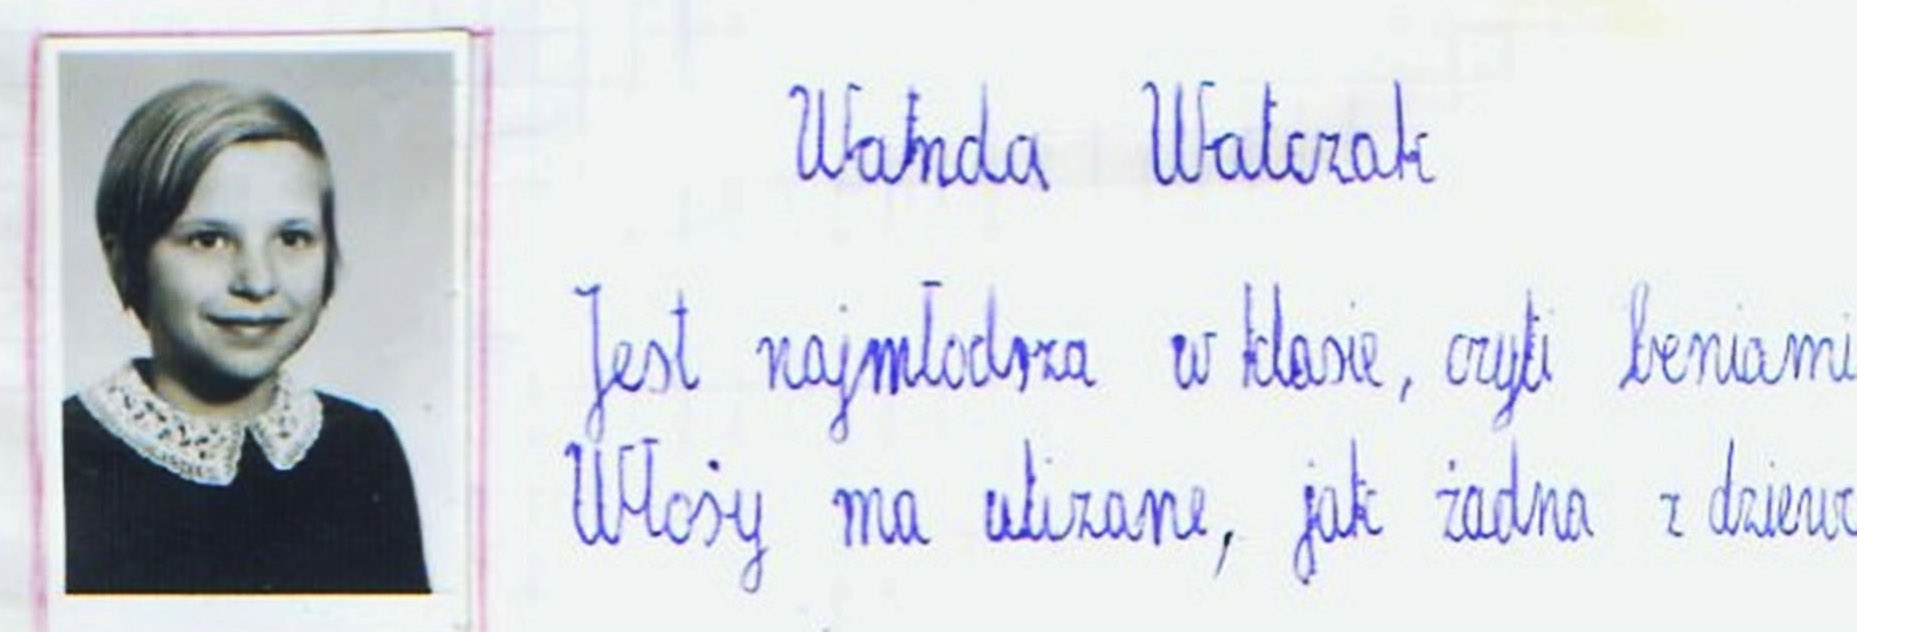 Wanda Walczak
Jest najmłodsza w klasie, czyli beniami
Włosy ma ulizane, jak żadna z dziewc